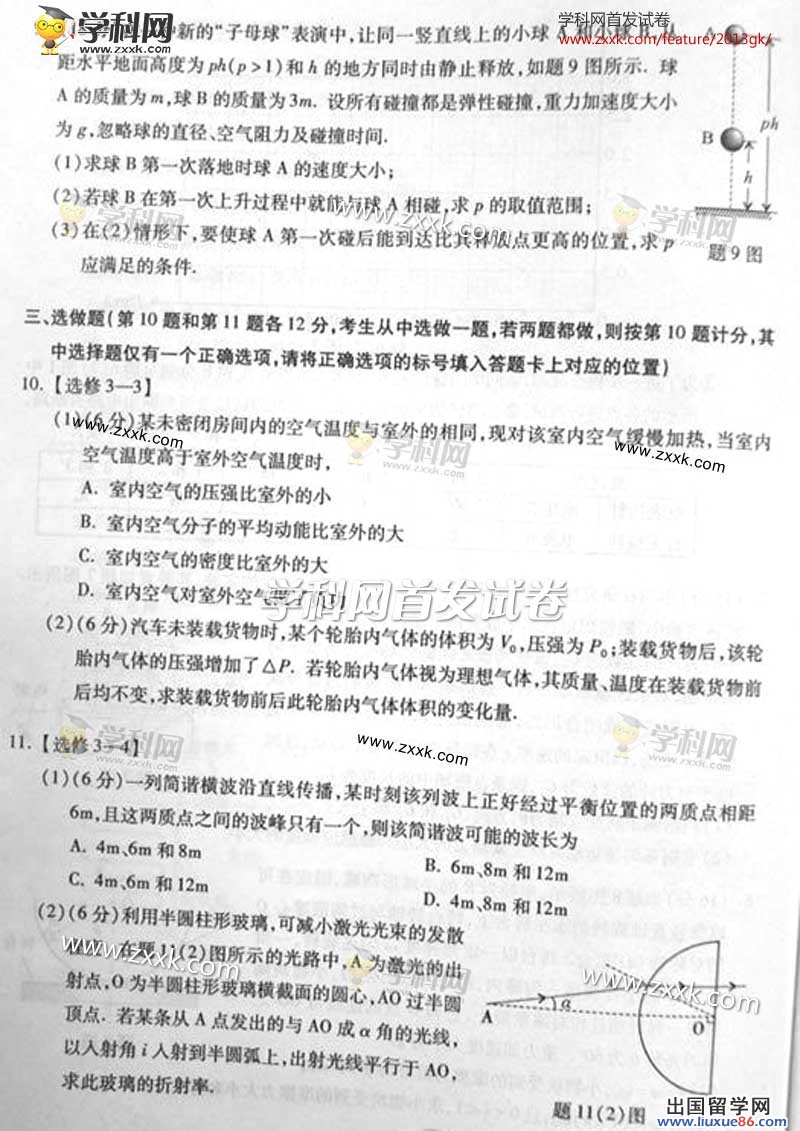 学科网首发试卷
www.zxxk.com/feature/2013gk/
学科网
www.zxxk.com
新的“子母球”表演中,让同一竖直线上的小球A和小球B,从
距水平地面高度为ph(p>1)和h的地方同时由静止释放,如题9图所示.球
A的质量为m,球B的质量为3m.设所有碰撞都是弹性碰撞,重力加速度大小
为g,忽略球的直径、空气阻力及碰撞时间.
(1)求球B第一次落地时球A的速度大小;
(2)若球B在第一次上升过程中就能与球A相碰,求p的取值范围;
(3)在(2)情形下,要使球A第一次碰后能到达比其释放点更高的位置,求p
应满足的条件.
A
B
h
ph
题9图
学科网
www.zxxk.com
www.zxxk.com
学科网
www.zxxk.com
三、选做题(第10题和第11题各12分,考生从中选做一题,若两题都做,则按第10题计分,其
中选择题仅有一个正确选项,请将正确选项的标号填入答题卡上对应的位置)
10.【选修3—3】
(1)(6分)某未密闭房间内的空气温度与室外的相同,现对该室内空气缓慢加热,当室内
空气温度高于室外空气温度时,
学科网
www.zxxk.com
www.zxxk.com
A. 室内空气的压强比室外的小
B. 室内空气分子的平均动能比室外的大
C. 室内空气的密度比室外的大
D. 室内空气对室外空气做了负功
学科网首发试卷
(2)(6分)汽车未装载货物时,某个轮胎内气体的体积为V₀,压强为P₀;装载货物后,该轮
胎内气体的压强增加了△P.若轮胎内气体视为理想气体,其质量、温度在装载货物前
后均不变,求装载货物前后此轮胎内气体体积的变化量.
学科网
www.zxxk.com
www.zxxk.com
学科网
www.zxxk.com
11.【选修3—4】
(1)(6分)一列简谐横波沿直线传播,某时刻该列波上正好经过平衡位置的两质点相距
6m,且这两质点之间的波峰只有一个,则该简谐波可能的波长为
A. 4m、6m和8m
B. 6m、8m和12m
C. 4m、6m和12m
D. 4m、8m和12m
(2)(6分)利用半圆柱形玻璃,可减小激光光束的发散
在题11(2)图所示的光路中,A为激光的出
射点,O为半圆柱形玻璃横截面的圆心,AO过半圆
顶点.若某条从A点发出的与AO成α角的光线,
以入射角i入射到半圆弧上,出射光线平行于AO,
求此玻璃的折射率.
www.zxxk.com
学科网
www.zxxk.com
www.zxxk.com
A
α
O
题11(2)图
出国留学网
www.liuxue86.com